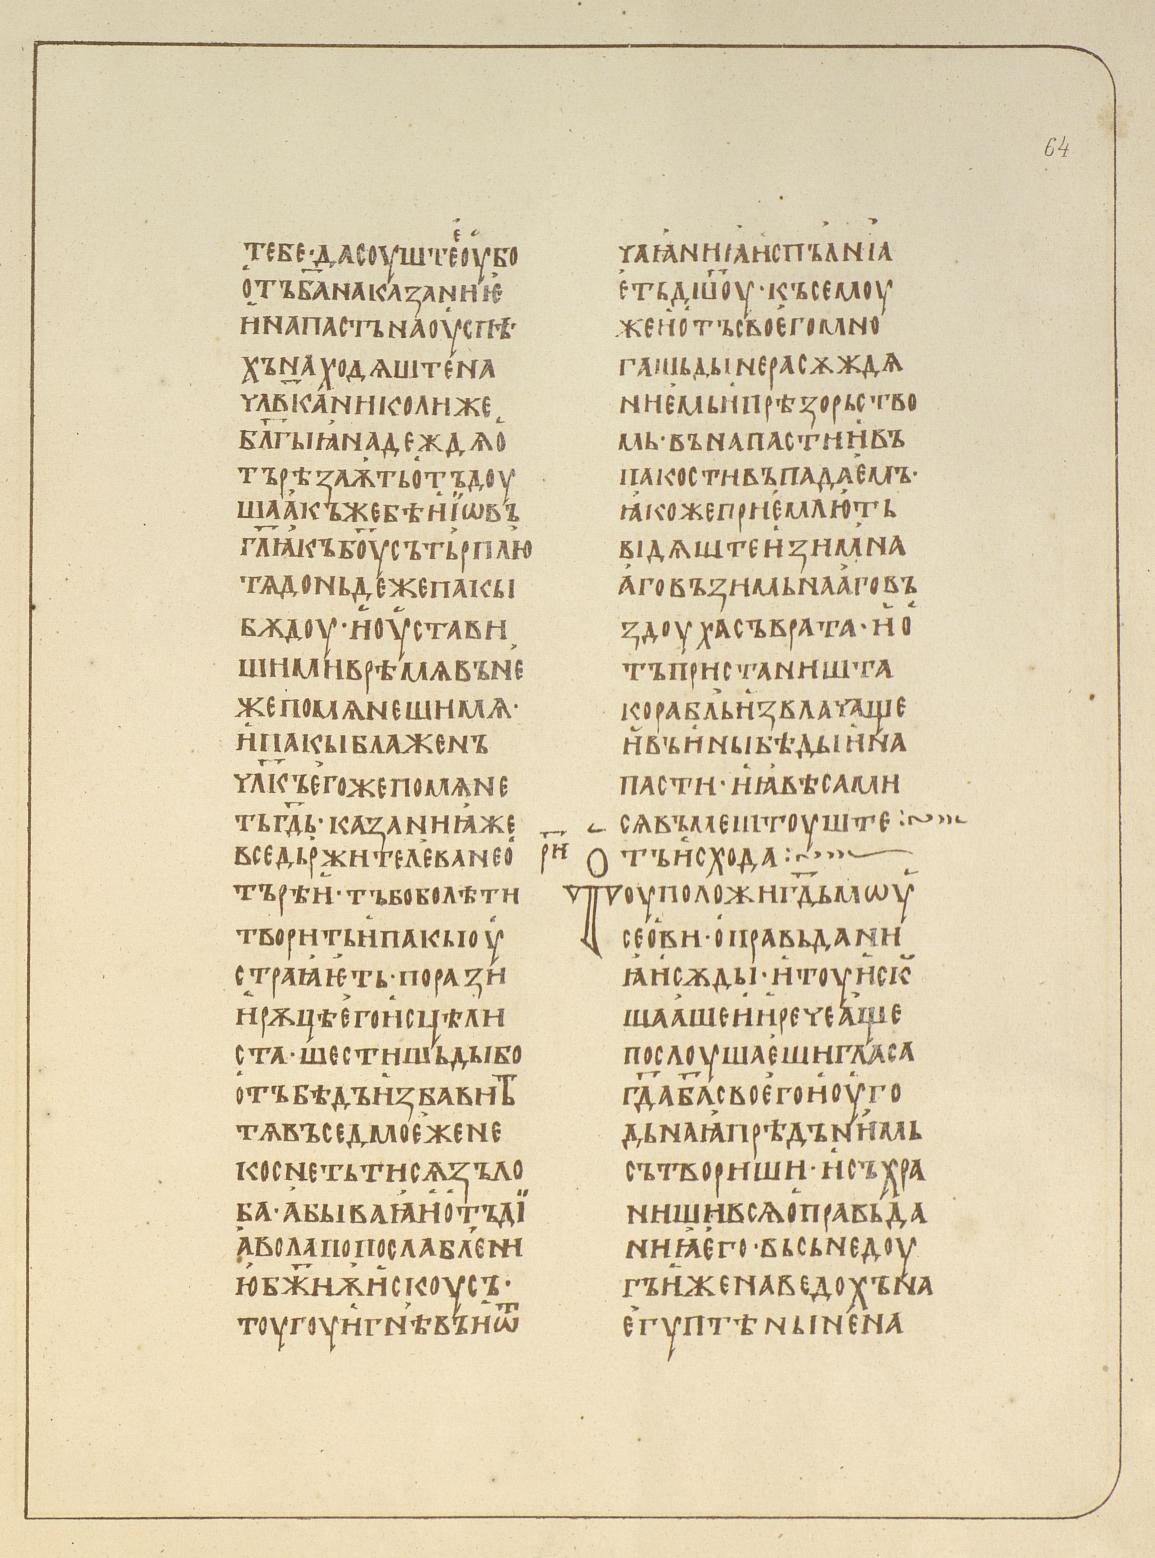 64
ТЕБЕ·ДАСОУШТЕЕОУБО
ОТЪБ҃АНАКАЗАНИѤ
ИНАПАСТЬНАОУСПѢ·
ХЪНАХОДѦШТЕНА
ЧЛ҃ВКАНИКОЛИЖЕ
БЛ҃ГЫꙖНАДЕЖДѦО
ТЪРѢЗАѬТЬОТЪДОУ
ШААКЪЖЕБѢИЇѠВЪ
ГЛ҃ꙖКЪБО҃УСЪТЬРПЛЮ
ТѦДОНЬДЕЖЕПАКЫ
БѪДОУ·ИОУСТАВИ
ШИМИВРѢМѦВЪНЕ
ЖЕПОМѦНЕШИМѦ·
ИПАКЫБЛАЖЕНЪ
ЧЛ҃КЪЕГОЖЕПОМѦНЕ
ТЬГ҃ДЬ·КАЗАНИꙖЖЕ
ВСЕДЬРЖИТЕЛЕВАНЕО
ТЪРѢИ·ТЪБОБОЛѢТИ
ТВОРИТЬИПАКЫОУ
СТРАꙖѤТЬ·ПОРАЗИ
ИРѪЦѢЕГОИСЦѢЛИ
СТА·ШЕСТИШЬДЫБО
ОТЪБѢДЪИЗБАВИТЬ
ТѦВЪСЕДМОЕЖЕНЕ
КОСНЕТЬТИСѦЗЪЛО
БА·АБЫВАꙖИОТЪДЇ
АВОЛАПОПОСЛАБЛЕНИ
ЮБЖИѬИСКОУСЪ·
ТОУГОУИГНѢВЪИѾ
ЧАꙖНИꙖИСПЪЛНІА
ЕТЬДШ҃ОУ·КЪСЕМОУ
ЖЕИОТЪСВОЕГОМНО
ГАШЬДЫНЕРАСѪЖДѦ
НИЕМЬИПРѢЗОРЬСТВО
МЬ·ВЪНАПАСТИИВЪ
ПАКОСТИВЪПАДАЕМЪ·
ꙖКОЖЕПРИЕМЛЮТЬ
ВІДѦШТЕИЗИМАНА
АГОВЪЗИМЬНААГОВЪ
ЗДОУХАСЪВРАТА·ИО
ТЪПРИСТАНИШТА
КОРАБЛЬИЗВЛАЧАЩЕ
ИВЪИНЫБѢДЫИНА
ПАСТИ·ИꙖВѢСАМИ
СѦВЪМЕШТОУШТЕ:~
РИ҃ ОТЪИСХОДА:~
ТОУПОЛОЖИГ҃ДЬМѠУ
СЕОВИ·ОПРАВЬДАНИ
ꙖИСѪДЫ·ИТОУИСК
ШААШЕИИРЕЧЕАЩЕ
ПОСЛОУШАЕШИГЛАСА
Г҃ДАБ҃АСВОЕГОИОУГО
ДЬНАꙖПРѢДЪНИМЬ
СЪТВОРИШИ·ИСЪХРА
НИШИВСѦОПРАВЬДА
НИꙖЕГО·ВЬСЬНЕДОУ
ГЪИЖЕНАВЕДОХЪНА
ЕГУПТѢНЫНЕНА